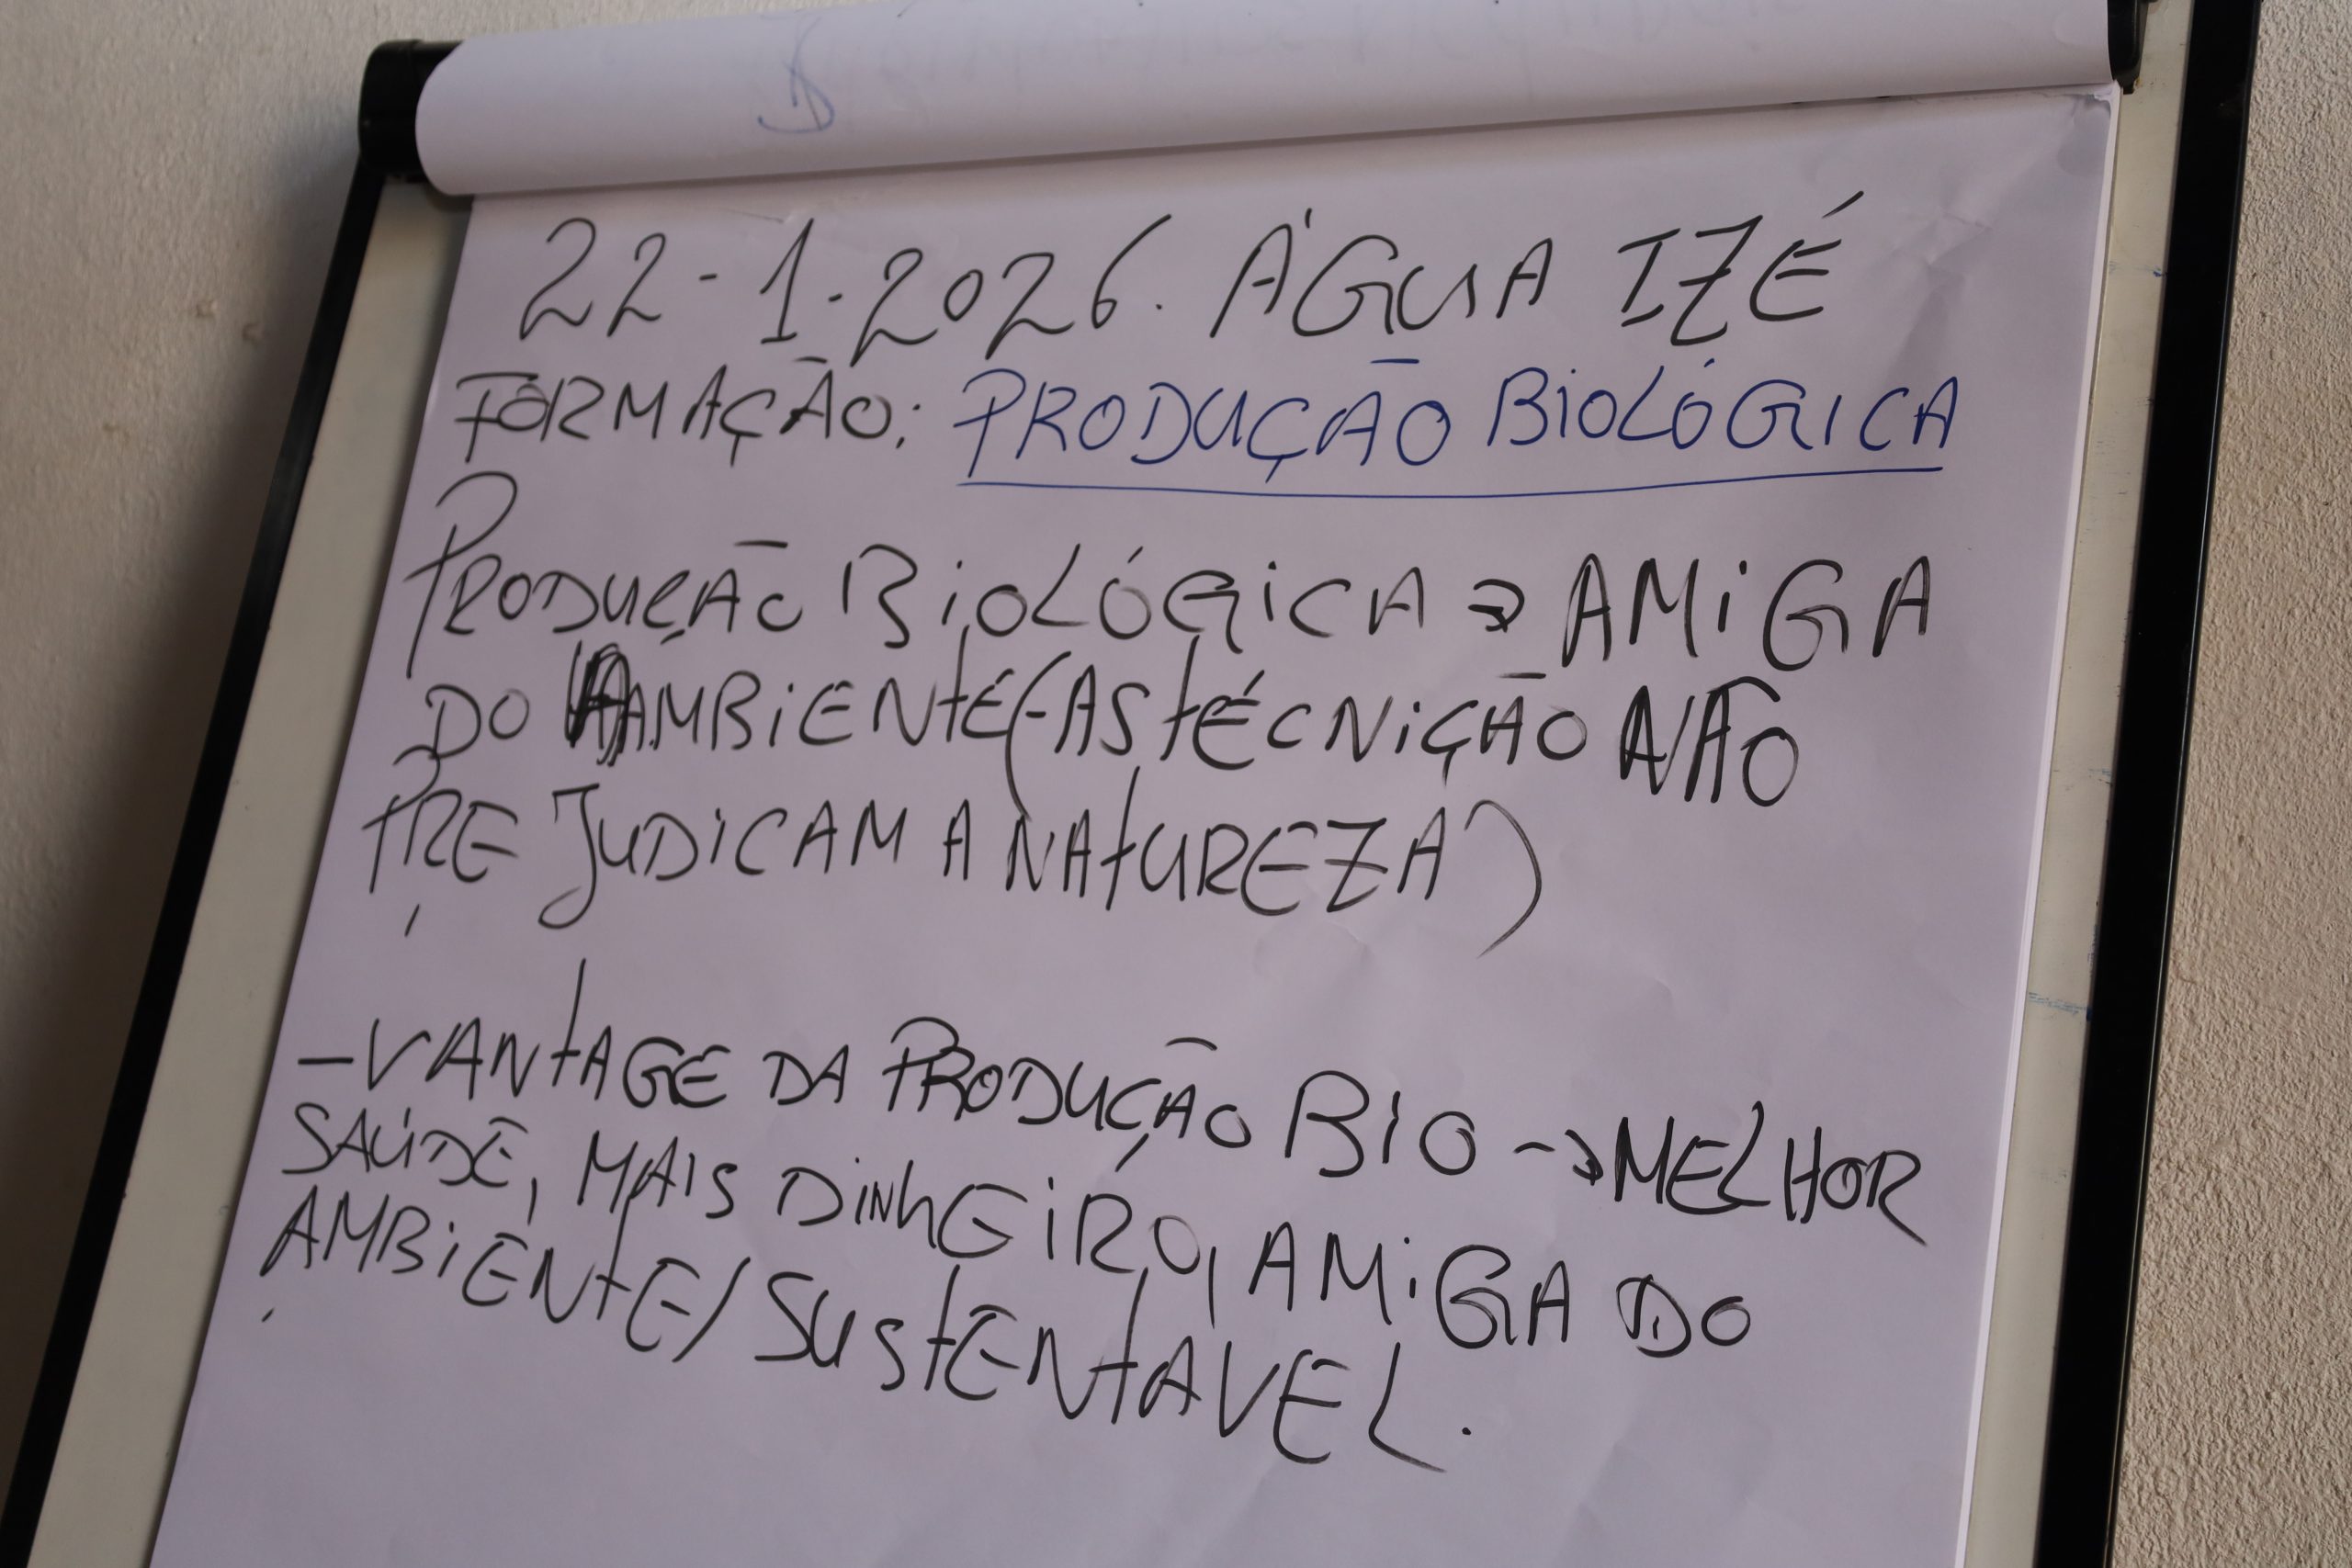 22-1-2026. ÁGUA IZÉ
FORMAÇÃO: PRODUÇÃO BIOLÓGICA
PRODUÇÃO BIOLÓGICA → AMIGA
DO AMBIENTE (-AS TÉCNIÇÃO NÃO
PREJUDICAM A NATUREZA)
-VANTAGE DA PRODUÇÃO BIO → MELHOR
SAÚDE, MAIS DINHEIRO, AMIGA DO
AMBIENTE/SUSTENTAVEL.